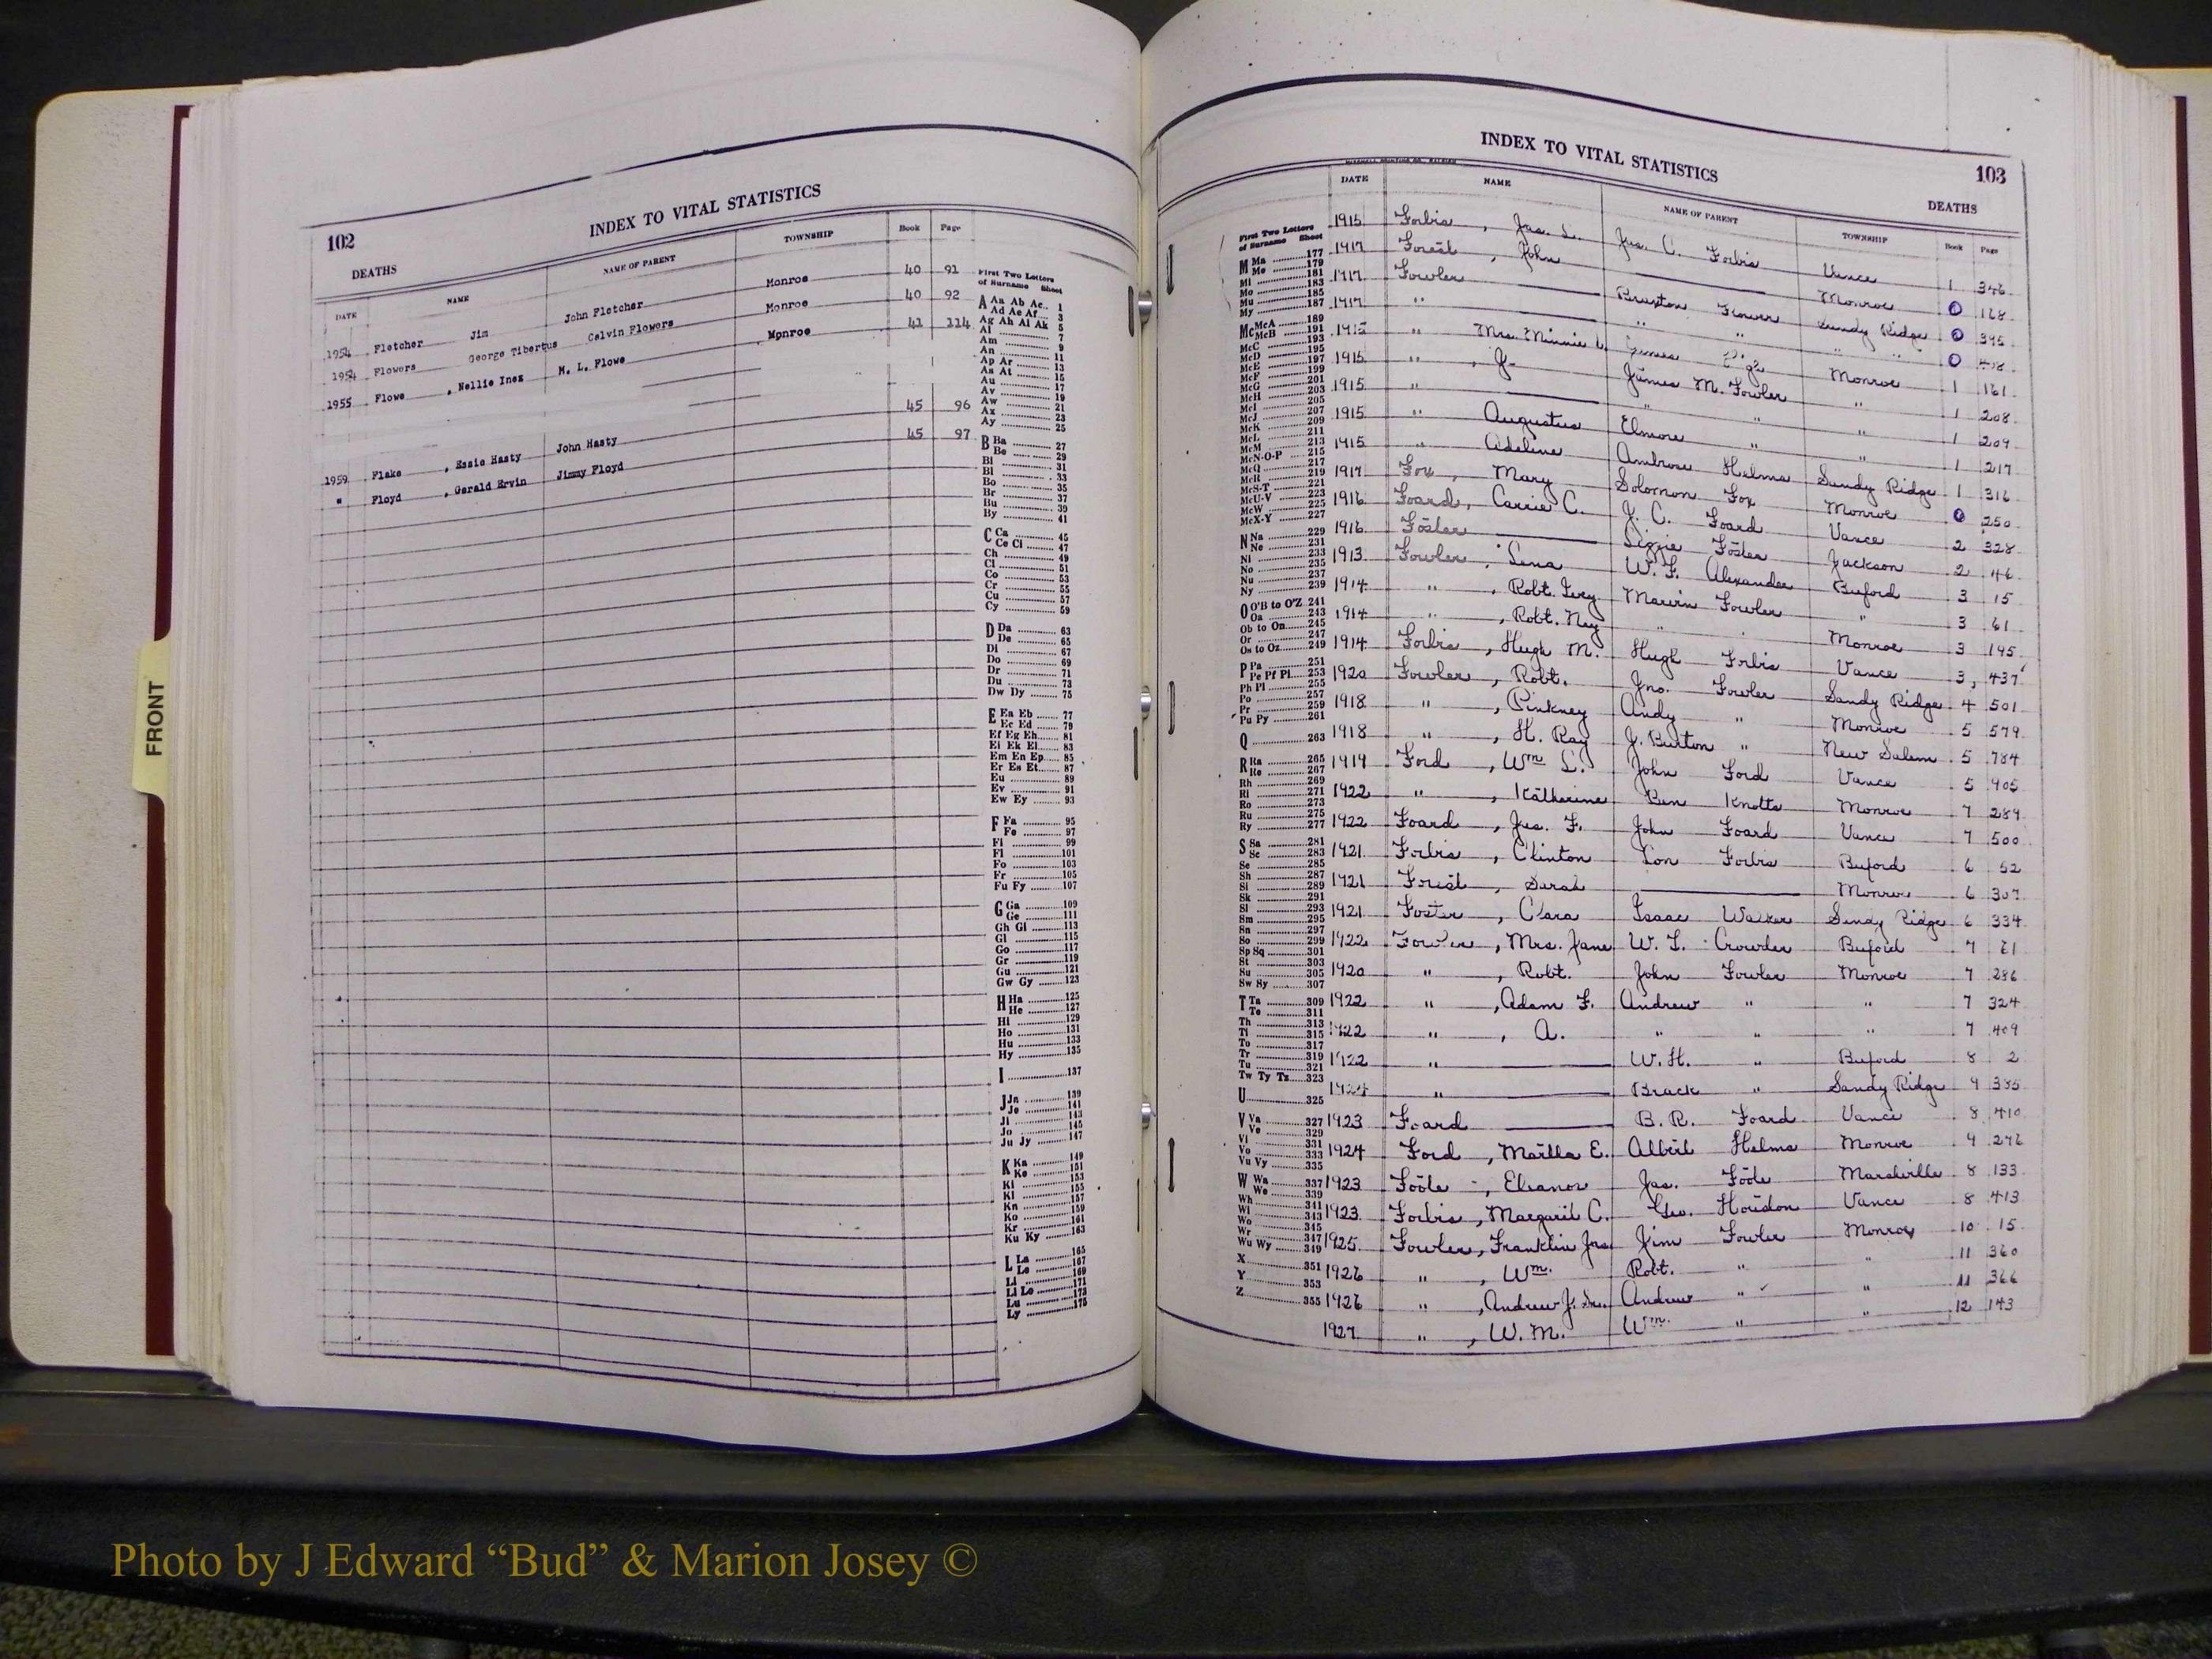 FRONT
INDEX TO VITAL STATISTICS
102
DEATHS
DATE NAME NAME OF PARENT TOWNSHIP Book Page
1954 Fletcher Jim John Fletcher Monroe 40 91
1954 Flowers George Tibertus Calvin Flowers Monroe 40 92
1955 Flowe , Nellie Inez M. L. Flowe Monroe 41 114
1959 Flake , Essie Hasty John Hasty 45 96
" Floyd , Gerald Ervin Jimmy Floyd 45 97
First Two Letters
of Surname Sheet
A Aa Ab Ac.. 1
Ad Ae Af.... 3
Ag Ah Ai Ak 5
Al 7
Am 9
An 11
Ap Ar 13
As At 15
Au 17
Av 19
Aw 21
Ax 23
Ay 25
B Ba 27
Be 29
Bi 31
Bl 33
Bo 35
Br 37
Bu 39
By 41
C Ca 45
Ce Ci 47
Ch 49
Cl 51
Co 53
Cr 55
Cu 57
Cy 59
D Da 63
De 65
Di 67
Do 69
Dr 71
Du 73
Dw Dy 75
E Ea Eb 77
Ec Ed 79
Ef Eg Eh 81
Ei Ek El 83
Em En Ep 85
Er Es Et 87
Eu 89
Ev 91
Ew Ey 93
F Fa 95
Fe 97
Fi 99
Fl 101
Fo 103
Fr 105
Fu Fy 107
G Ga 109
Ge 111
Gh Gi 113
Gl 115
Go 117
Gr 119
Gu 121
Gw Gy 123
H Ha 125
He 127
Hi 129
Ho 131
Hu 133
Hy 135
I 137
J Ja 139
Je 141
Ji 143
Jo 145
Ju Jy 147
K Ka 149
Ke 151
Ki 153
Kl 155
Kn 157
Ko 159
Kr 161
Ku Ky 163
L La 165
Le 167
Li 169
Ll Lo 171
Lu 173
Ly 175
INDEX TO VITAL STATISTICS
103
DEATHS
DATE NAME NAME OF PARENT TOWNSHIP Book Page
First Two Letters
of Surname Sheet
M Ma 177
Me 179
Mi 181
Mo 183
Mu 185
My 187
Mc McA 189
McB 191
McC 193
McD 195
McE 197
McF 199
McG 201
McH 203
McI 205
McJ 207
McK 209
McL 211
McM 213
McN-O-P 215
McQ 217
McR 219
McS-T 221
McU-V 223
McW 225
McX-Y 227
N Na 229
Ne 231
Ni 233
No 235
Nu 237
Ny 239
O O'B to O'Z 241
Oa 243
Ob to On 245
Or 247
Os to Oz 249
P Pa 251
Pe Pf Pi 253
Ph Pl 255
Po 257
Pr 259
Pu Py 261
Q 263
R Ra 265
Re 267
Rh 269
Ri 271
Ro 273
Ru 275
Ry 277
S Sa 281
Sc 283
Se 285
Sh 287
Si 289
Sk 291
Sl 293
Sm 295
Sn 297
So 299
Sp Sq 301
St 303
Su 305
Sw Sy 307
T Ta 309
Te 311
Th 313
Ti 315
To 317
Tr 319
Tu 321
Tw Ty Tz 323
U 325
V Va 327
Ve 329
Vi 331
Vo 333
Vu Vy 335
W Wa 337
We 339
Wh 341
Wi 343
Wo 345
Wr 347
Wu Wy 349
X 351
Y 353
Z 355
1915 Forbis , Jas. L. Jas. C. Forbis Vance 1 346
1917 Forest , John Monroe 0 168
1917 Fowler Braxton Flowers Sandy Ridge 0 395
1917 " " " " " 0
1915 " Mrs. Minnie Monroe 1 161
1915 " J. James M. Fowler " 1 208
1915 " " " " 1 209
1915 " Augustus Elmore " " 1 217
1915 " Adeline Ambrose Helms Sandy Ridge 1 316
1917 Fox , Mary Solomon Fox Monroe 0 250
1916 Foard, Carrie C. J. C. Foard Vance 2 328
1916 Foster Lizzie Foster Jackson 2 46
1913 Fowler , Lena W. L. Alexander Buford 3 15
1914 " , Robt. Ivey Marvin Fowler " 3 61
1914 " , Robt. Ney " " Monroe 3 195
1914 Forbis , Hugh M. Hugh Forbis Vance 3, 437
1920 Fowler , Robt. Jno. Fowler Sandy Ridge 4 501
1918 " , Pinkney Andy " Monroe 5 579
1918 " , H. Ray J. Burton " New Salem 5 784
1919 Ford , Wm L. John Ford Vance 5 905
1922 " , Katherine Ben Knotts Monroe 7 289
1922 Foard , Jas. F. John Foard Vance 7 500
1921 Forbis , Clinton Lon Forbis Buford 6 52
1921 Forest , Sarah Monroe 6 307
1921 Foster , Clara Isaac Walker Sandy Ridge 6 334
1922 Fowler , Mrs. Jane W. L. Crowder Buford 7 61
1920 " , Robt. John Fowler Monroe 7 286
1922 " , Adam F. Andrew " " 7 324
1922 " , A. " " " 7 409
1922 " W. H. " Buford 8 2
1924 " Brack " Sandy Ridge 9 385
1923 Foard B. R. Foard Vance 8 410
1924 Ford , Martha E. Albert Helms Monroe 9 276
1923 Foote , Eleanor Jas. Foote Marshville 8 133
1923 Forbis , Margaret C. Geo. Houston Vance 8 413
1925 Fowler , Franklin Jas Jim Fowler Monroe 10 15
1926 " , Wm. Robt. " " 11 360
1926 " , Andrew J. Sr. Andrew " " 11 366
1927 " , W. M. Wm. " " 12 143
Photo by J Edward “Bud” & Marion Josey ©